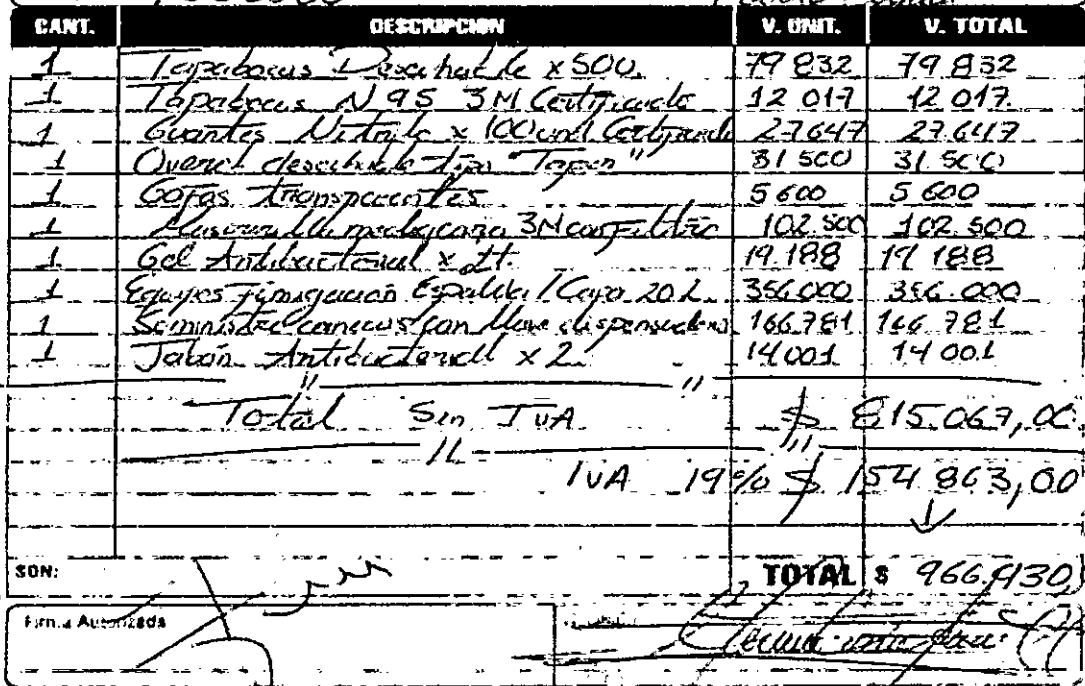 CANT. DESCRIPCION V. UNIT. V. TOTAL
1 Tapabocas Desechable x 500. 79 832 79 832
1 Tapabocas N 95 3M Certificado 12 017 12 017
1 Guantes Nitrilo x 100 und Certificado 27.647 27.647
1 Overol desechable tipo "Tayen" 31 500 31.500
1 Gafas transparentes 5 600 5 600
1 3M con filtro 102.500 102.500
1 Gel Antibacterial x Lt. 19.188 19 188
1 Equipos Fumigación Espalda / Capo 20 L. 356.000 356.000
1 Suministro canecas con llave dispensadora 166.781 166.781
1 Jabón Antibacterial x 2 14 001 14 001
Total Sin IVA $ 815.067,00
IVA 19% $ 154 863,00
SON: TOTAL $ 966.430,
Firma Autorizada